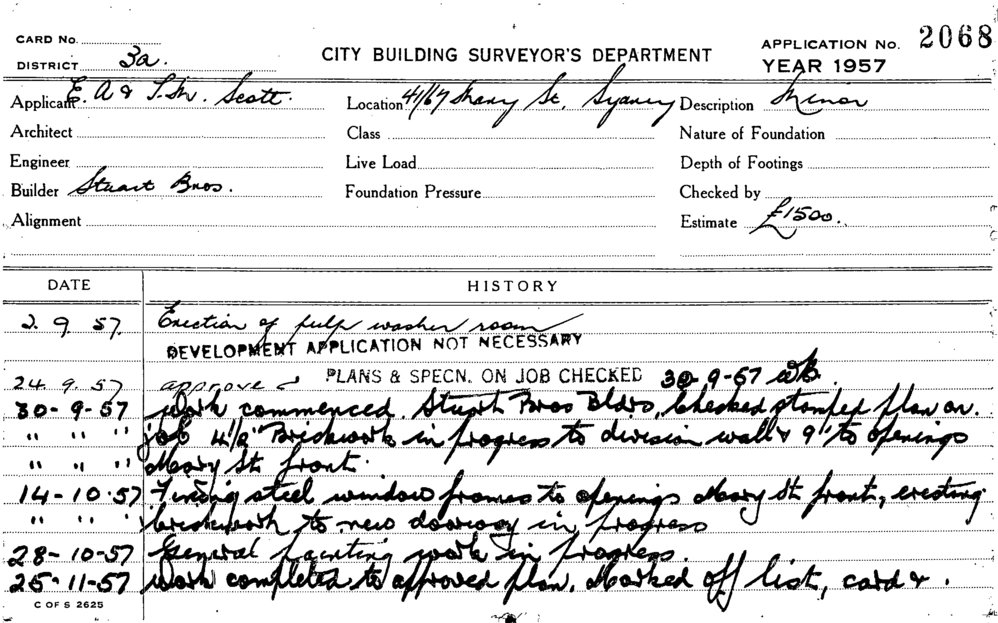 CARD No.
DISTRICT 3a.
CITY BUILDING SURVEYOR'S DEPARTMENT
APPLICATION No. 2068
YEAR 1957
Applicant E. A & T. M. Scott. Location 41/67 Mary St, Sydney Description Minor
Architect Class Nature of Foundation
Engineer Live Load Depth of Footings
Builder Stuart Bros. Foundation Pressure Checked by
Alignment Estimate £1500.
DATE HISTORY
2. 9. 57. Erection of pulp washer room
DEVELOPMENT APPLICATION NOT NECESSARY
24. 9. 57 approved PLANS & SPECN. ON JOB CHECKED 30-9-57
30-9-57 Work commenced. Stuart Bros Bldrs, checked stamped plan on
" " " job 4½" Brickwork in progress to division wall & 9" to openings
" " " Mary St. front.
14-10-57 Fixing steel window frames to openings Mary St front, erecting
" " " brickwork to new doorway in progress
28-10-57 General painting work in progress.
25-11-57 Work completed to approved plan. Marked off list, card & .
C OF S 2625